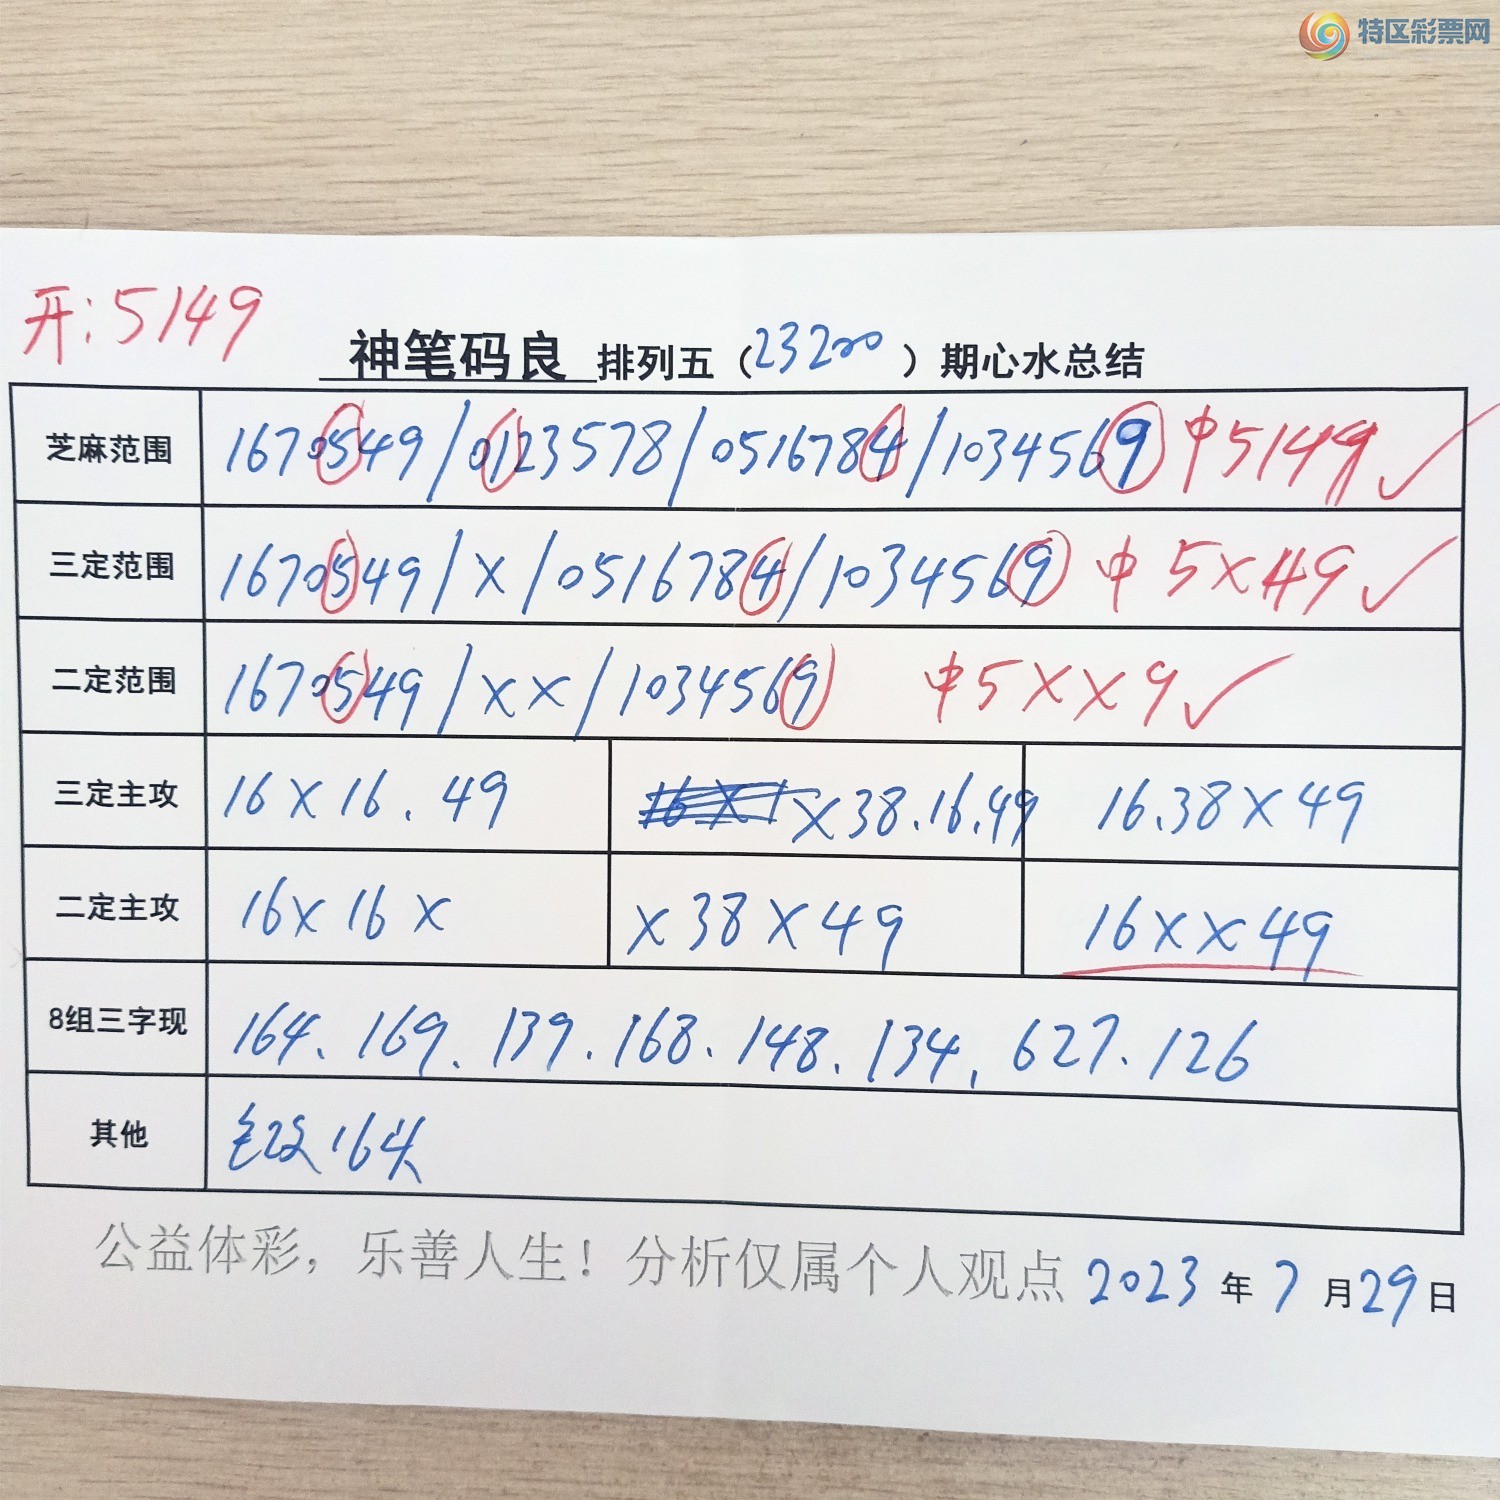 特区彩票网
开:5149
神笔码良 排列五(23200)期心水总结
芝麻范围 1670549/0123578/0516784/1034569 中5149✓
三定范围 1670549/X/0516784/1034569 中5X49✓
二定范围 1670549/XX/1034569 中5XX9✓
三定主攻 16X16.49 X38.16.49 16.38X49
二定主攻 16X16X X38X49 16XX49
8组三字现 164、169.139.168.148.134,627.126
其他 16头
公益体彩，乐善人生！分析仅属个人观点 2023年7月29日